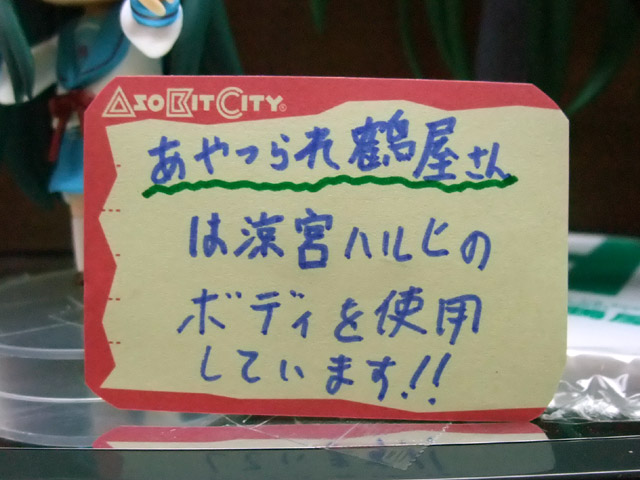 ASOBITCITY®
あやつられ鶴屋さん
は涼宮ハルヒの
ボディを使用
しています!!